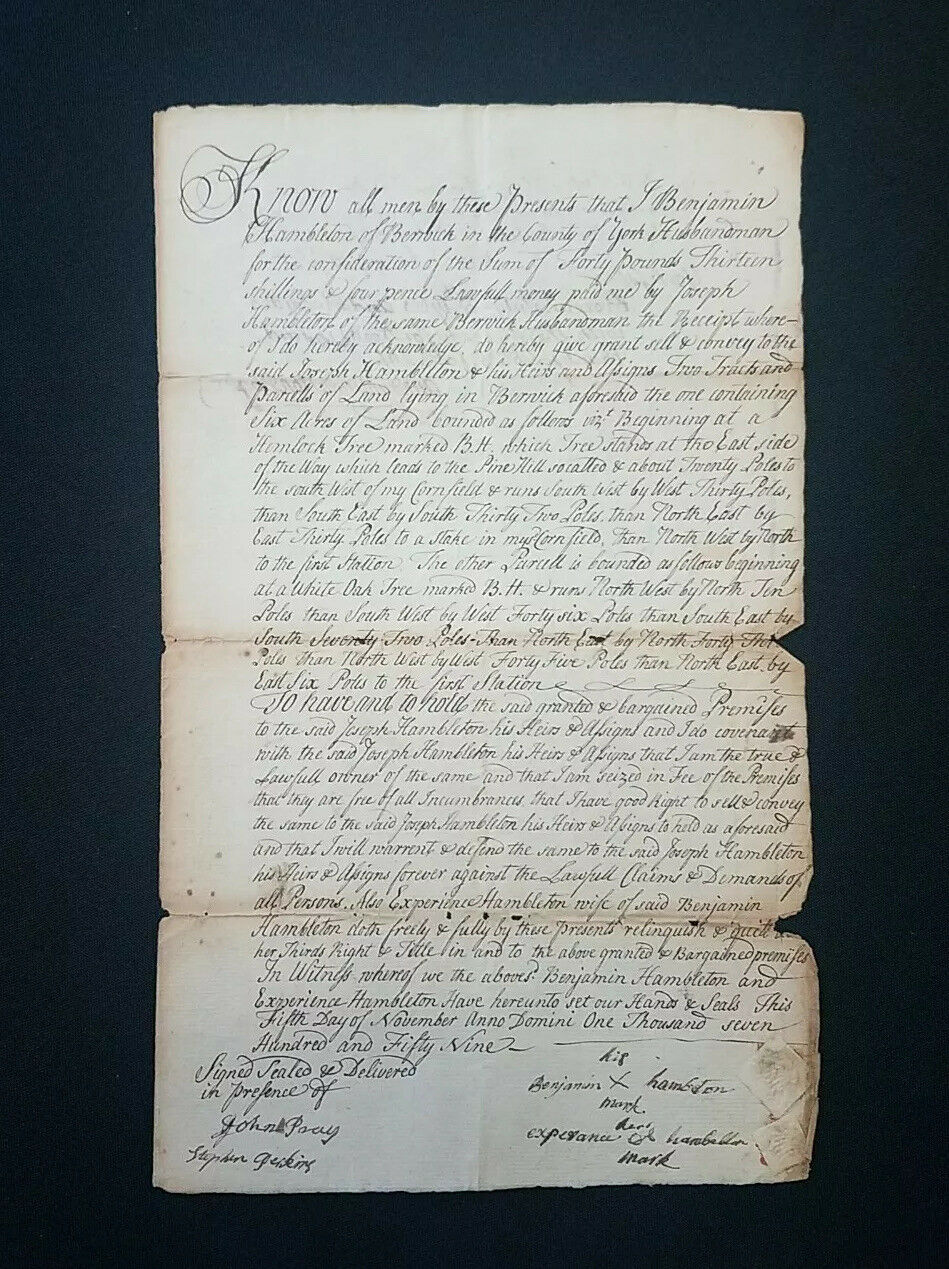 Know all men by these Presents that I Benjamin
Hambleton of Berwick in the County of York Husbandman
for the consideration of the Sum of Forty Pounds Thirteen
shillings & four pence Lawfull money paid me by Joseph
Hambleton of the same Berwick Husbandman the Receipt where-
of I do hereby acknowledge, do hereby give grant sell & convey to the
said Joseph Hambleton & his Heirs and Assigns Two Tracts and
Parcells of Land lying in Berwick aforesaid the one containing
Six Acres of Land bounded as follows vizt Beginning at a
Hemlock Tree marked B.H. which Tree stands at the East side
of the Way which leads to the Pine Hill socalled & about Twenty Poles to
the south West of my Cornfield & runs South West by West Thirty Poles,
than South East by South Thirty Two Poles, than North East by
East Thirty Poles to a stake in my Cornfield, than North West by North
to the first Station. The other Parcell is bounded as follows beginning
at a White Oak Tree marked B.H. & runs North West by North Ten
Poles than South West by West Forty six Poles than South East by
South Seventy Two Poles - Than North East by North Forty
Poles than North West by West Forty Five Poles than North East by
East Six Poles to the first Station
To have and to hold the said granted & bargained Premises
to the said Joseph Hambleton his Heirs & Assigns and I do covenant
with the said Joseph Hambleton his Heirs & Assigns that I am the true &
Lawfull owner of the same and that I am seized in Fee of the Premises
that they are free of all Incumbrances, that I have good Right to sell & convey
the same to the said Joseph Hambleton his Heirs & Assigns to hold as aforesaid
and that I will warrent & defend the same to the said Joseph Hambleton
his Heirs & Assigns forever against the Lawfull Claims & Demands of
all Persons. Also Experience Hambleton wife of said Benjamin
Hambleton doth freely & fully by these Presents relinquish & quit
her Thirds Right & Title in and to the above granted & Bargained premises
In Witness whereof we the aboves.d Benjamin Hambleton and
Experience Hambleton Have hereunto set our Hands & Seals This
Fifth Day of November Anno Domini One Thousand seven
Hundred and Fifty Nine
Signed Sealed & Delivered
in presence of
John Pray
Stephen Perkins
his
Benjamin X hambton
mark
hers
experance hambelton
mark